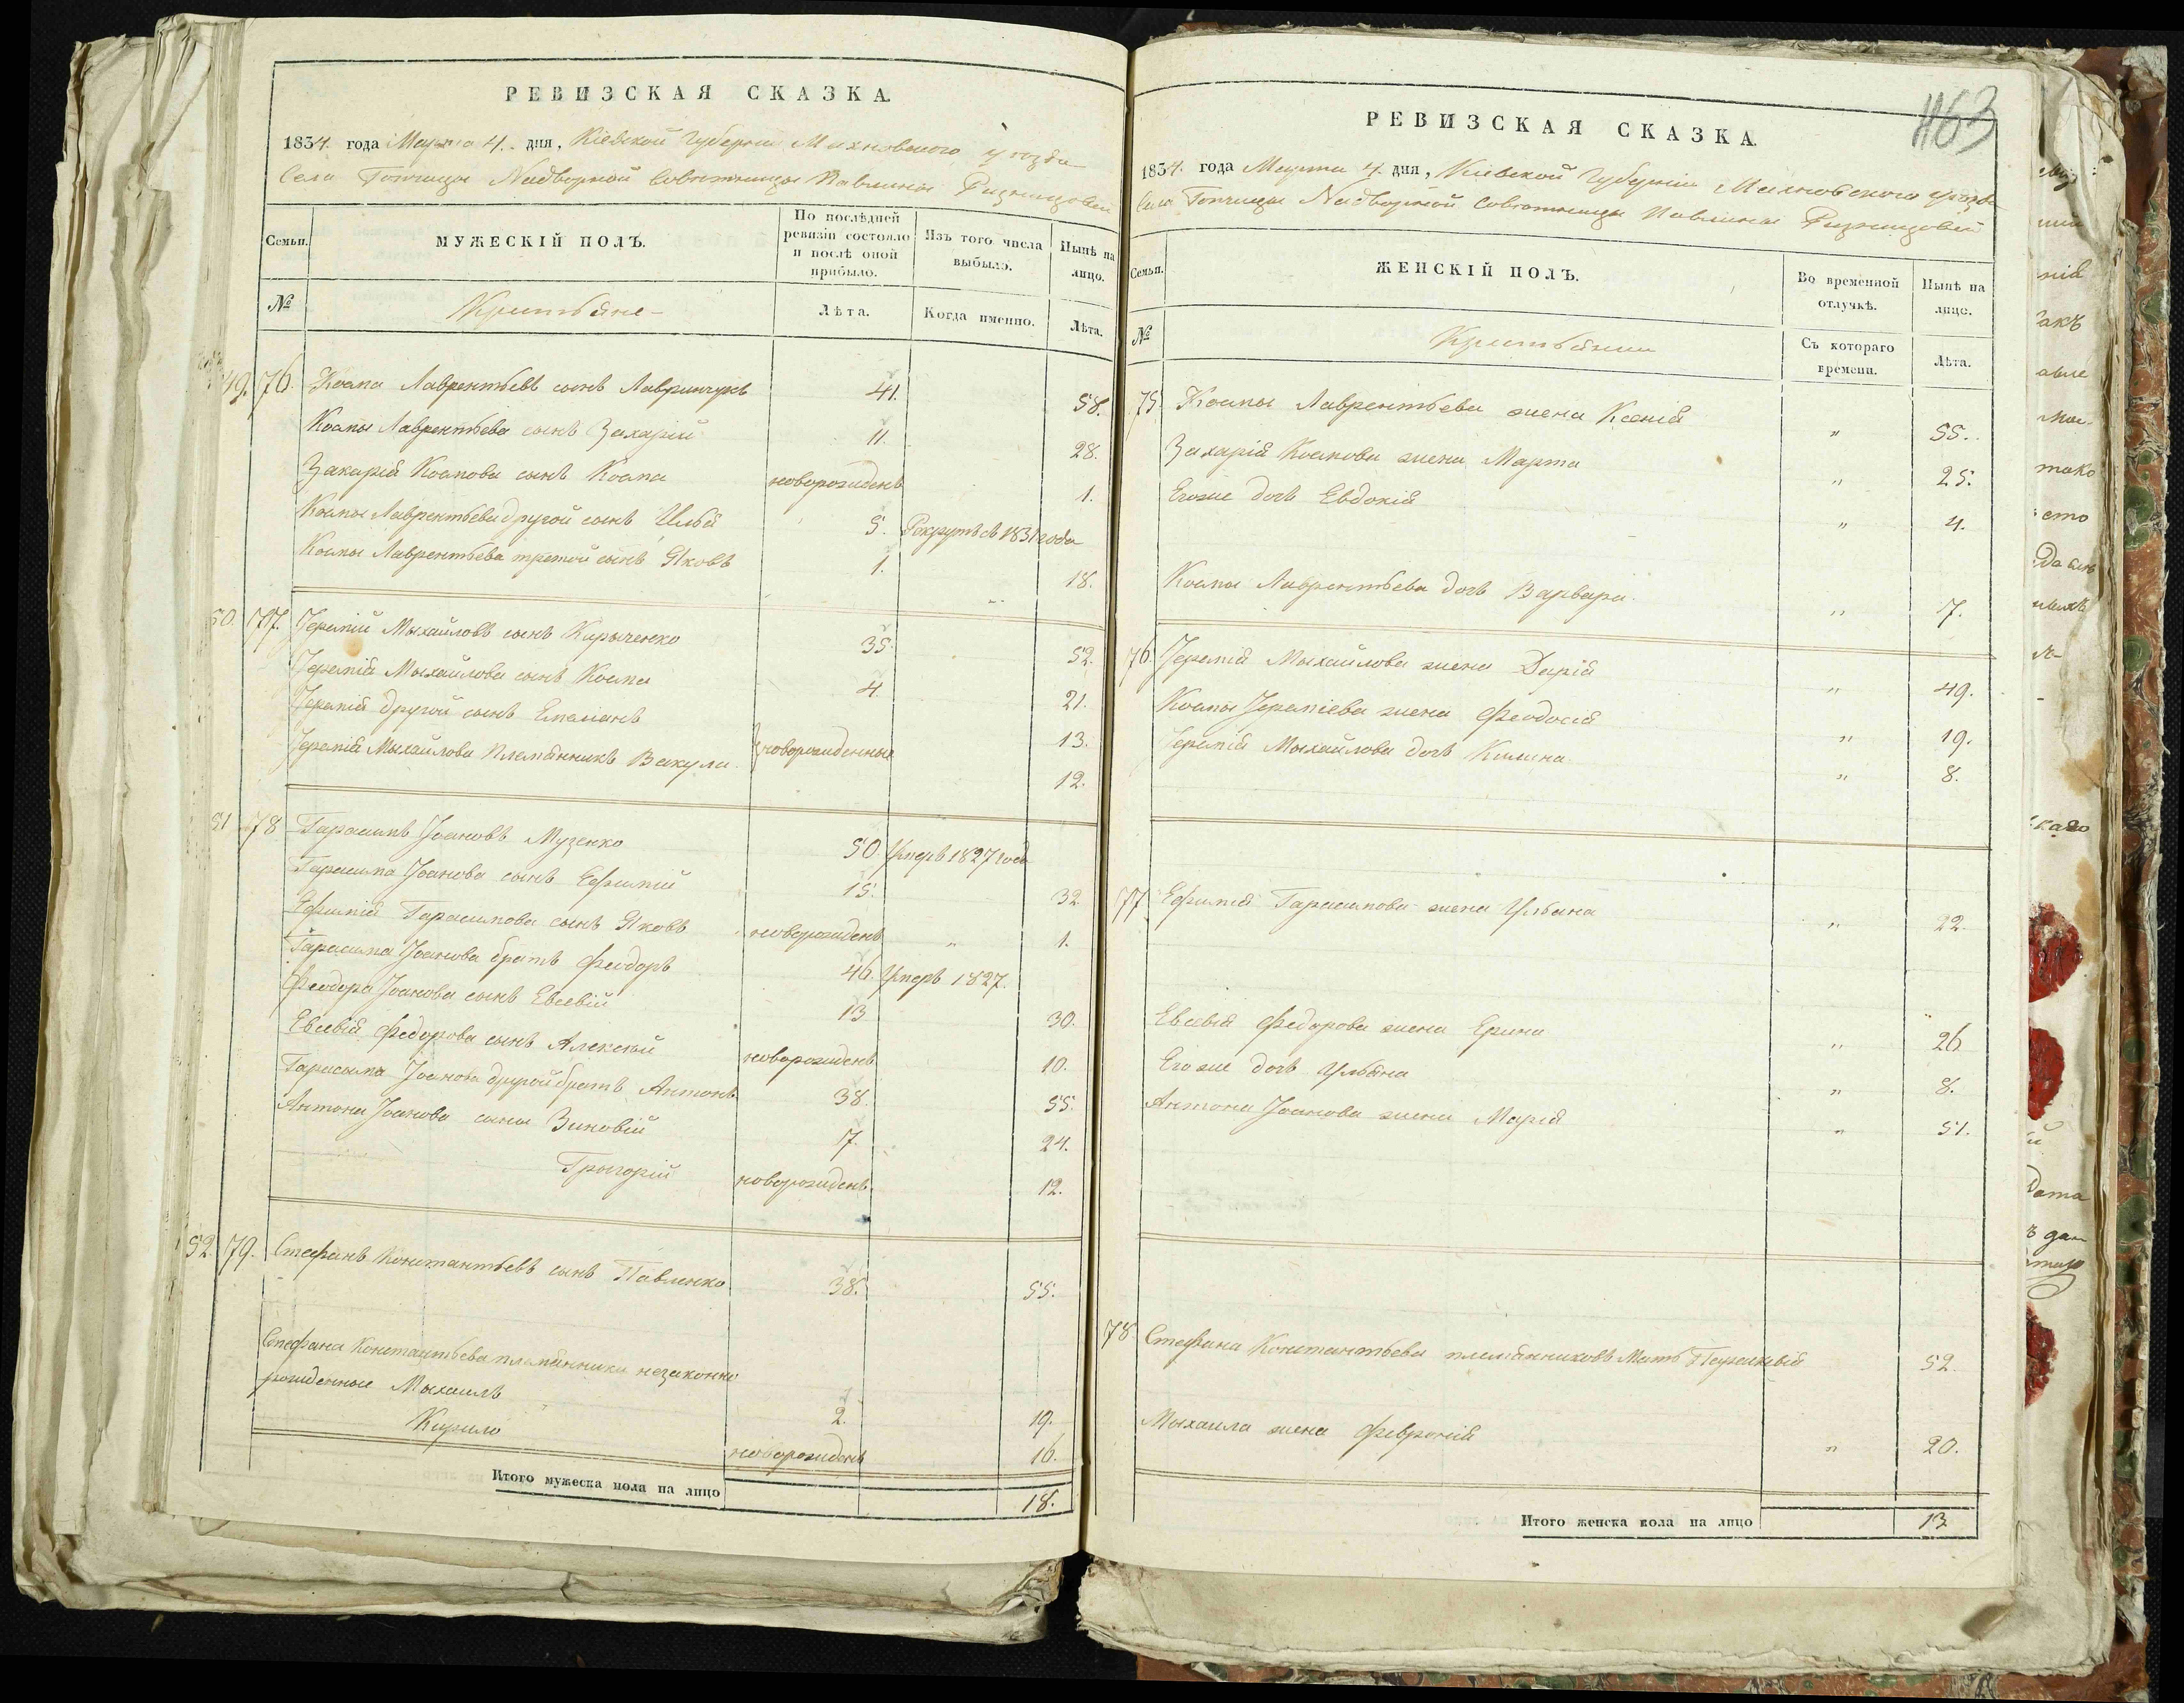 РЕВИЗСКАЯ СКАЗКА.
1834. года Марта 4. дня, Кіевской Губерніи Махновского уезда
Села Топчицы Надворной Советницы Павлины Ризничовой
Семьи.
МУЖЕСКІЙ ПОЛЪ.
По послѣдней ревизіи состояло и послѣ оной прибыло.
Изъ того числа выбыло.
Нынѣ на лицо.
№
Крестьяне
Лѣта.
Когда именно.
Лѣта.
49. 76. Козма Лаврентьевъ сынъ Лавринчукъ 41. 58.
Козмы Лаврентьева сынъ Захарій 11. 28.
Захарія Козмова сынъ Козма новорожденъ 1.
Козмы Лаврентьева другой сынъ Илья 5. Рекрутъ въ 1831 года
Козмы Лаврентьева третой сынъ Яковъ 1. 18.
50. 77. Іеремій Мыхайловъ сынъ Кирыченко 35. 52.
Іеремія Мыхайлова сынъ Козма 4. 21.
Іеремія другой сынъ Емеліанъ 13.
Іеремія Мыхайлова племянникъ Вакула новорожденные 12.
51 78 Гарасимъ Іоановъ Музенко 50 Умеръ 1827 года
Гарасима Іоанова сынъ Ефимій 15. 32
Ефимія Гарасимова сынъ Яковъ новорожденъ " 1.
Гарасима Іоанова братъ Феодоръ 46. Умеръ 1827.
Феодора Іоанова сынъ Евсевій 13 30.
Евсевія Федорова сынъ Алексей новорожденъ 10.
Гарасима Іоанова другой братъ Антонъ 38. 55.
Антона Іоанова сыны Зиновій 7. 24.
Григорій новорожденъ. 12.
52. 79. Стефанъ Константьевъ сынъ Павленко 38. 55.
Стефана Константьева племянники незаконно
рожденные Мыхаилъ 2. 19.
Кирило новорожденъ 16.
Итого мужеска пола на лицо 18.
1163
РЕВИЗСКАЯ СКАЗКА.
1834. года Марта 4. дня, Кіевской Губерніи Махновского уезда
Села Топчицы Надворной Советницы Павлины Ризничовой
Семьи.
ЖЕНСКІЙ ПОЛЪ.
Во временной отлучкѣ.
Нынѣ на лице.
№
Крестьянки
Съ котораго времени.
Лѣта.
75. Козмы Лаврентьева жена Ксенія " 55.
Захарія Козмова жена Марта " 25.
Егоже дочь Евдокія " 4.
Козмы Лаврентьева дочь Варвара " 7.
76. Іеремія Мыхайлова жена Дарія " 49.
Козмы Іереміева жена Феодосія " 19.
Іеремія Мыхайлова дочь Килина " 8.
77. Ефимія Гарасимова жена Ульяна " 22.
Евсевія Федорова жена Ерина " 26
Егоже дочь Ульяна " 8.
Антона Іоанова жена Марія " 51.
78 Стефана Константьева племянниковъ Мать Параскевія 52.
Мыхаила жена Февронія " 20.
Итого женска пола на лицо 13